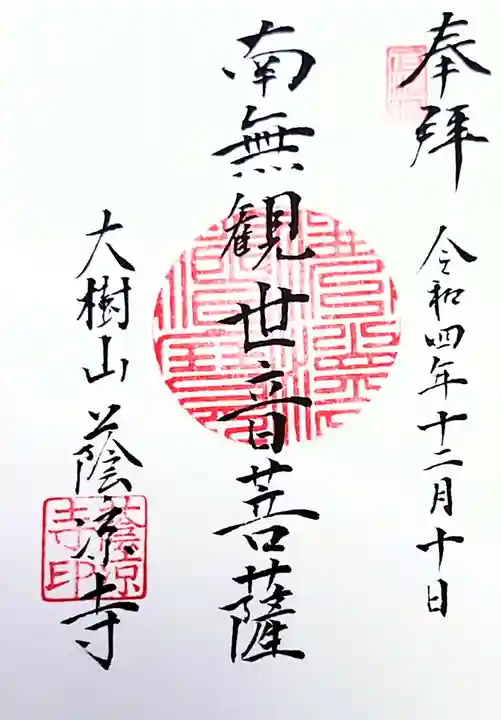 奉拜
令和四年十二月十日
南無観世音菩薩
大樹山 蔭凉寺
蔭凉寺印